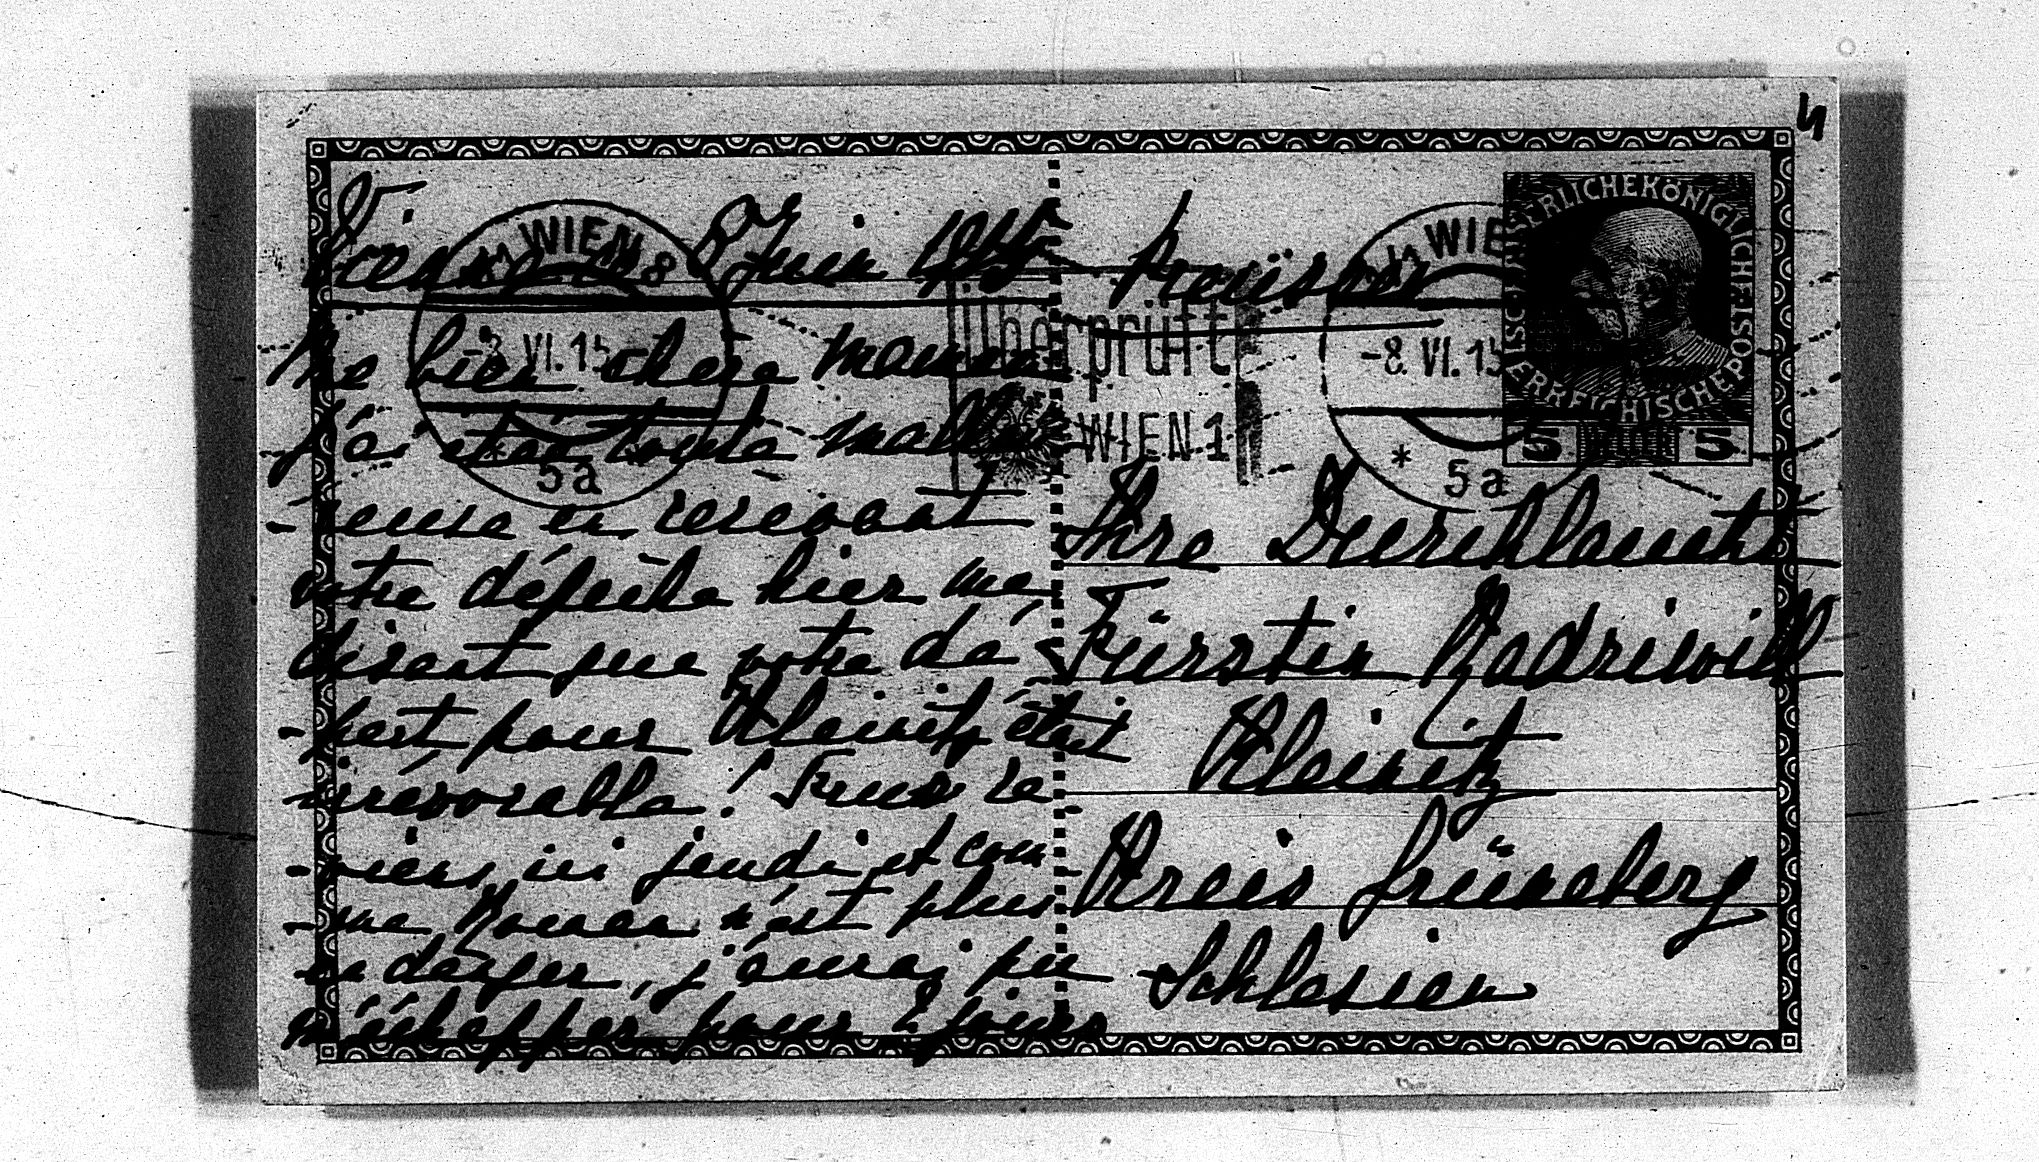 Vienne 8 Juin 1915
Ma bien chère maman
J'ai été toute malheu-
-reuse en recevant
votre dépêche hier me
disant que votre dé-
-part pour Kleinitz était
irrévocable! Franz re-
-viens ici jeudi et com-
-me Roman n'est plus
en danger, j'aurai pu
m'échapper pour 2 jours
WIEN
-8. VI. 15
5a
Überprüft
WIEN 1
WIE
-8. VI. 15
* 5a
KAISERLICHEKÖNIGLICHE
ÖSTERREICHISCHEPOST
5 5
Ihre Durchlaucht
Fürstin Radziwill
Kleinitz
Kreis Grüneberg
Schlesien